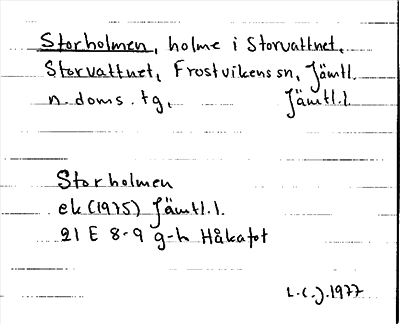 Storholmen, holme i Storvattnet,
Storvattnet, Frostvikens sn, Jämtl.
n. doms. tg, Jämtl.l.
Storholmen
ek (1975) Jämtl.l.
21 E 8-9 g-h Håkafot
L.C.J. 1977